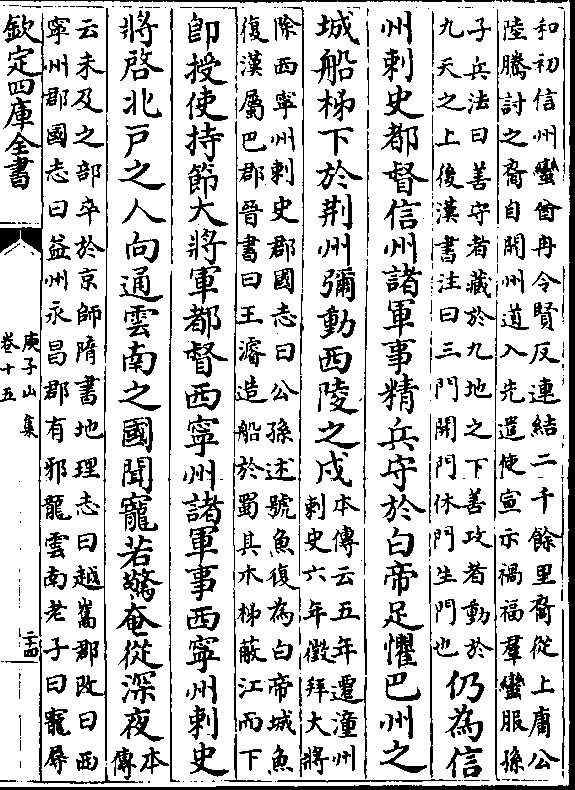 和初信州蠻酋冉令賢反連結二千餘里裔從上庸公
陸騰討之裔自開州道入先遣使宣示禍福羣蠻服孫
子兵法曰善守者藏於九地之下善攻者動於
九天之上後漢書注曰三門開門休門生門也
仍為信
州刺史都督信州諸軍事精兵守於白帝足懼巴州之
城船梯下於荆州彌動西陵之戍
本傳云五年遷潼州
刺史六年徵拜大將
除西寧州刺史郡國志曰公孫述號魚復為白帝城魚
復漢屬巴郡晉書曰王濬造船於蜀具木梯蔽江而下
即授使持節大將軍都督西寧州諸軍事西寧州刺史
將啓北户之人向通雲南之國聞寵若驚奄從深夜
本
傳
云未及之部卒於京師隋書地理志曰越嶲郡改曰西
寧州郡國志曰益州永昌郡有邪龍雲南老子曰寵辱
欽定四庫全書
庾子山集
卷十五
二十四